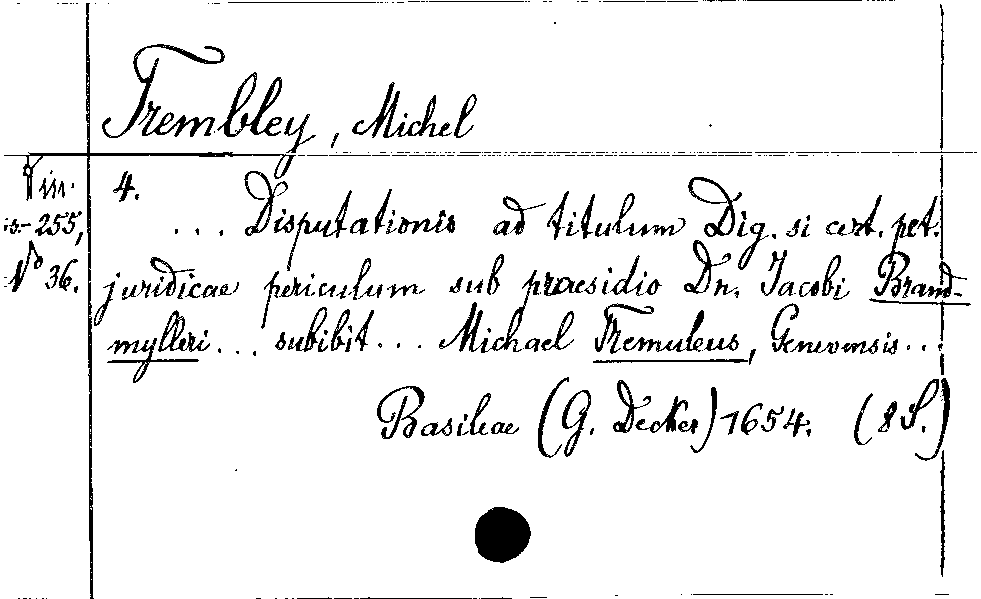 Trembley, Michel
4.
255,
No 36.
... Disputationis ad titulum Dig. si cert. pet.
juridicae periculum sub praesidio Dn. Jacobi Brand-
mylleri ... subibit ... Michael Tremuleus, Genevensis ...
Basileae (G. Decker) 1654. (8 S.)